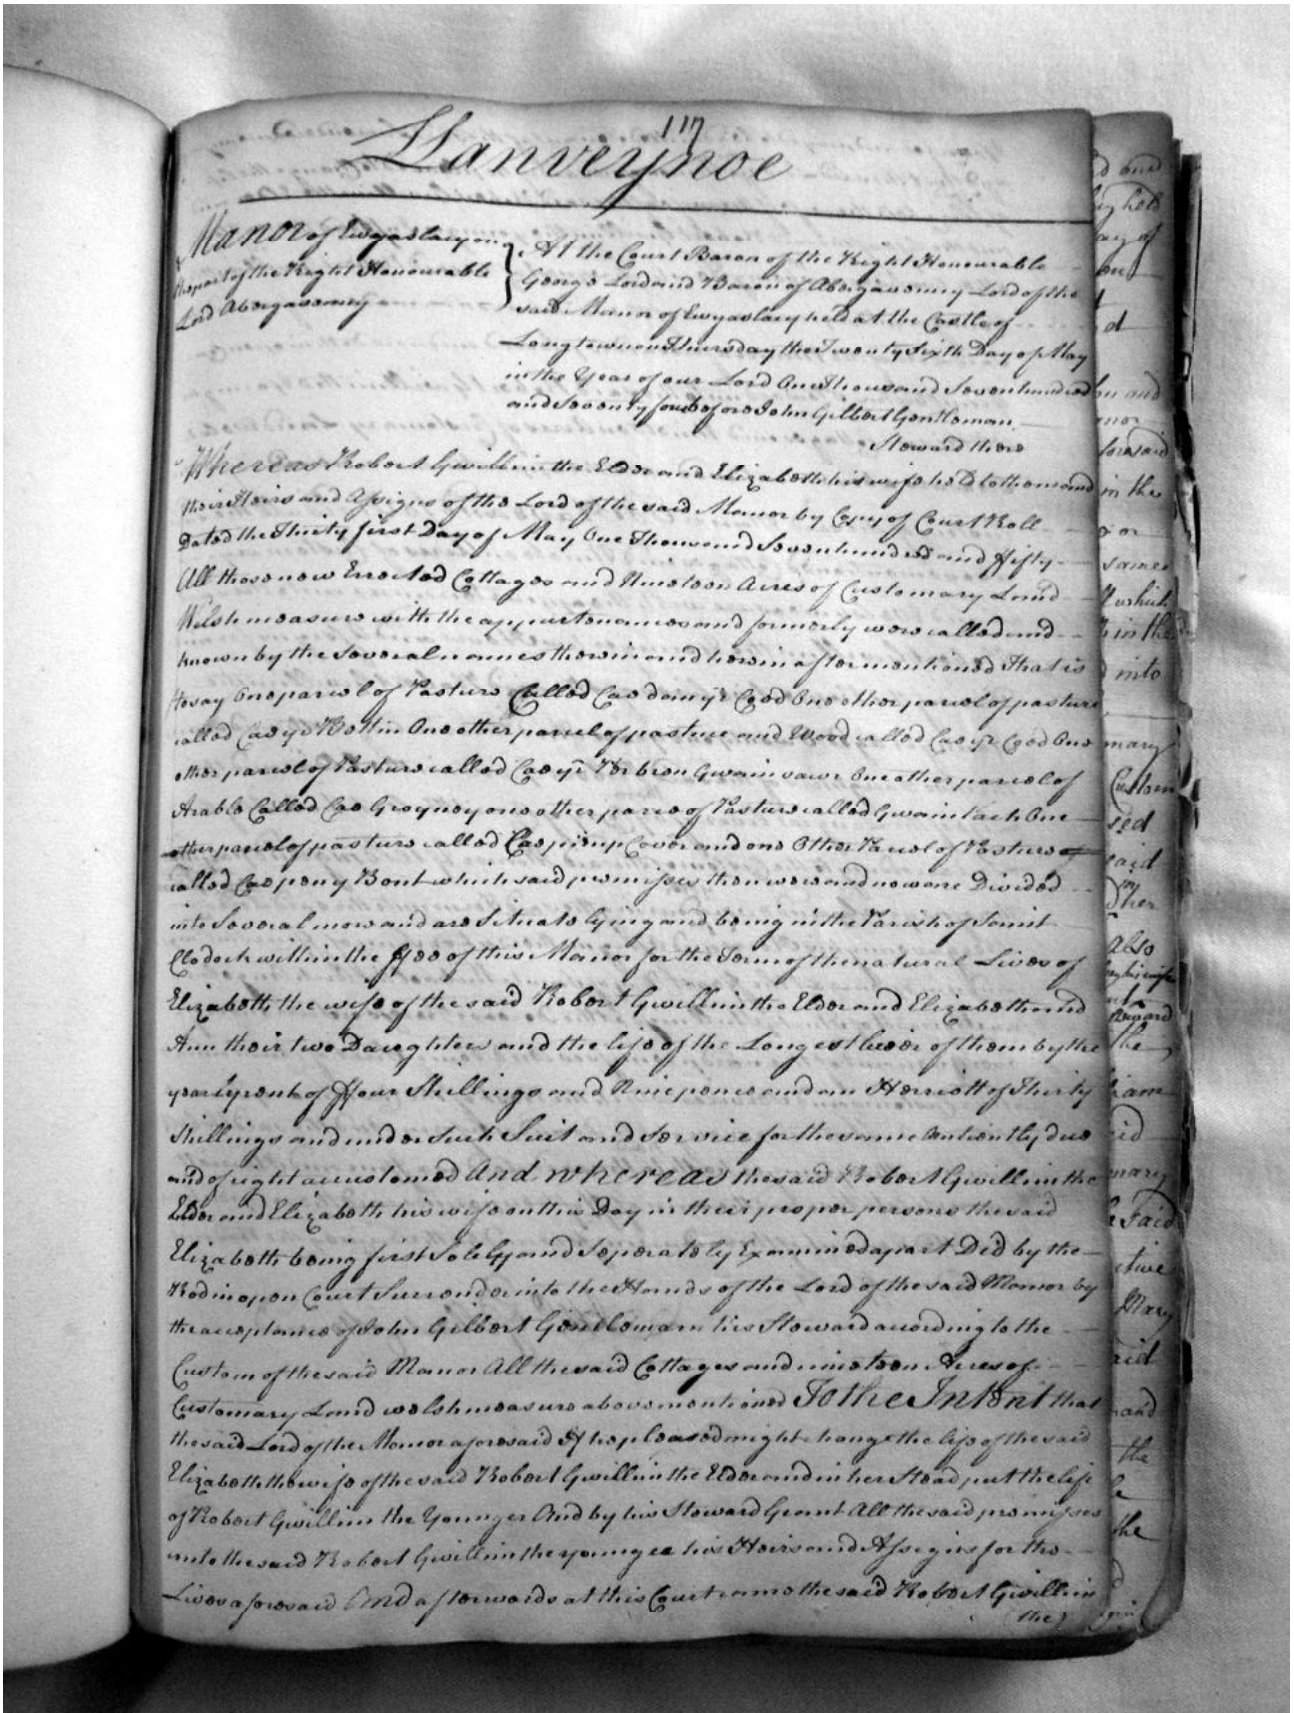 117
Llanveynoe
Manor of Ewyaslacy in
the part of the Right Honourable
Lord Abergavenny
At the Court Baron of the Right Honourable
George Lord and Baron of Abergavenny Lord of the
said Manor of Ewyaslacy held at the Castle of
Longtown on Thursday the Twenty Sixth Day of May
in the Year of our Lord One Thousand Seven hundred
and Seventy four before John Gilbert Gentleman
Steward there
Whereas Robert Gwillim the Elder and Elizabeth his wife held to them and
their Heirs and Assigns of the Lord of the said Manor by Copy of Court Roll
Dated the Thirty first Day of May One Thousand Seven hundred and ffifty
All those now Errected Cottages and Nineteen Acres of Customary Land
Welsh measure with the appurtenances and formerly were called and
known by the several names therein and herein after mentioned That is
to say One parcel of Pasture Called Cae dany'r Coed One other parcel of pasture
called Cae yr One other parcel of pasture and Wood called Cae yr Coed One
other parcel of Pasture called Cae yr Gwain vawr One other parcel of
Arable Called Cae one other parce of Pasture called Gwain One
other parcel of pasture called Cae and one Other Parcel of Pasture
called Cae pen y Bont which said premisses then were and now are Divided
into Several more and are Situate lying and being in the Parish of Saint
Clodock within the ffee of this Manor for the Term of the natural Lives of
Elizabeth the wife of the said Robert Gwillim the Elder and Elizabeth and
Ann their two Daughters and the life of the Longest liver of them by the
yearly rent of ffour Shillings and Nine pence and an Herriott of Thirty
Shillings and under such Suit and Service for the same Antiently due
and of right accustomed And whereas the said Robert Gwillim the
Elder and Elizabeth his wife on this Day in their proper persons the said
Elizabeth being first Sole and Seperately Examined apart Did by the
Rod in open Court Surrender into the Hands of the Lord of the said Manor by
the acceptance of John Gilbert Gentleman his Steward according to the
Custom of the said Manor All the said Cottages and nineteen Acres of
Customary Land welsh measure above mentioned To the Intent that
the said Lord of the Manor aforesaid If he pleased might change the life of the said
Elizabeth the wife of the said Robert Gwillim the Elder and in her Stead put the life
of Robert Gwillim the Younger And by his Steward Grant All the said premisses
unto the said Robert Gwillim the younger his Heirs and Assigns for the
Lives aforesaid And afterwards at this Court came the said Robert Gwillim
the